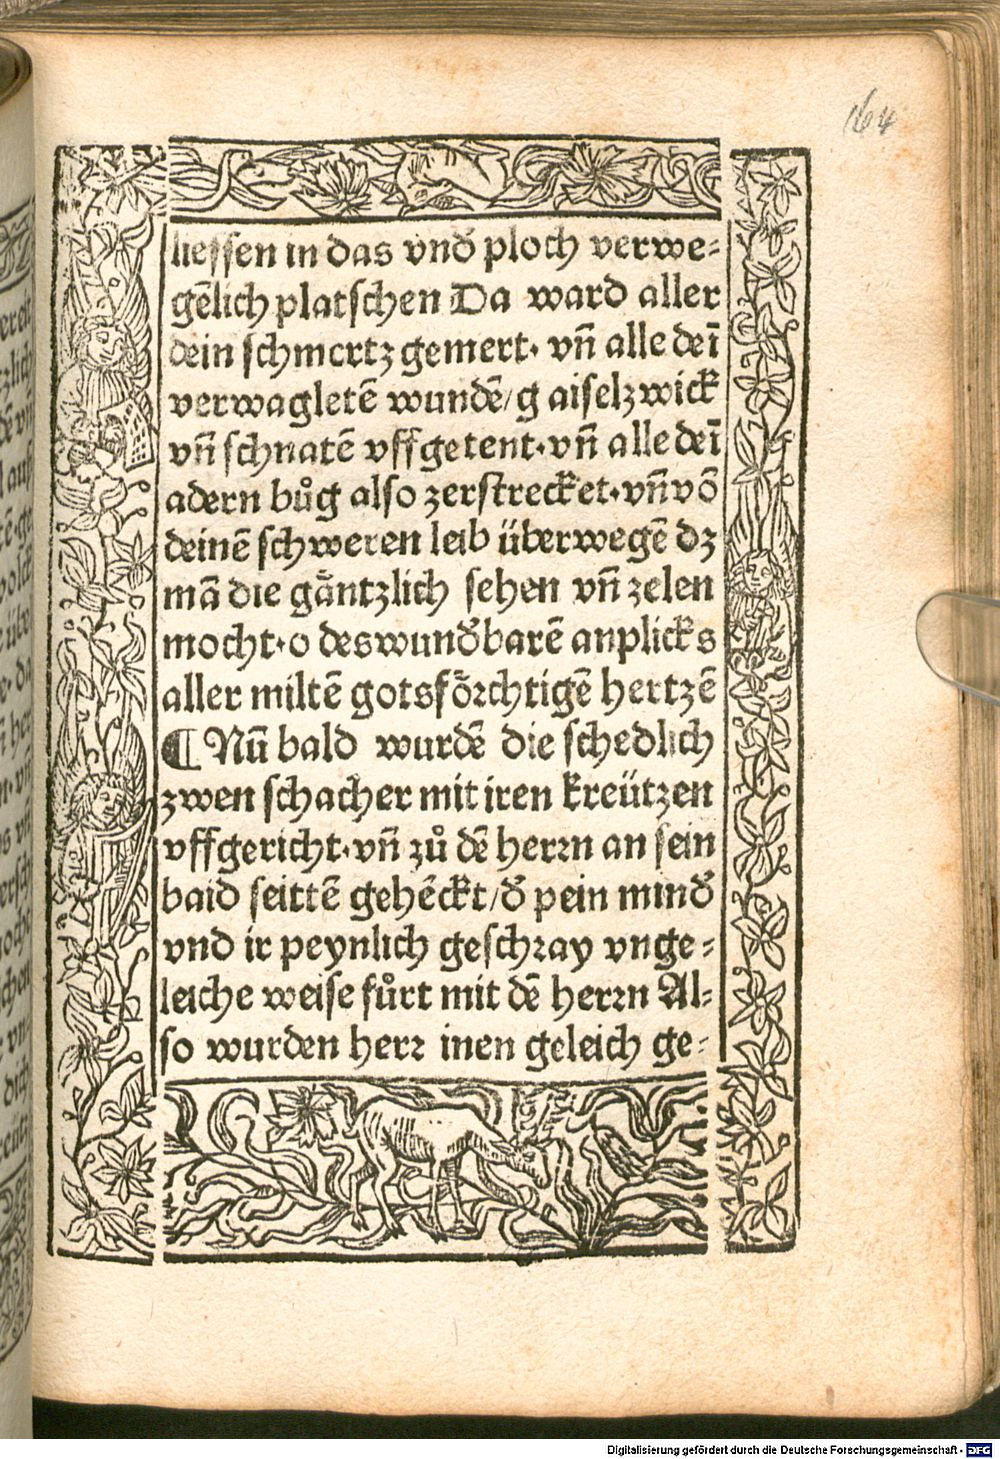 164
liessen in das vnd̕ ploch verwe⸗
gēlich platschen Da ward aller
dein schmertz gemert· vn̄ alle deī
verwagletē wundē/ g aiselzwick
vn̄ schnatē vffgetent· vn̄ alle deī
adern bůg also zerstrecket· vn̄ võ
deinē schweren leib überwegē dz
mā die gäntzlich sehen vn̄ zelen
mocht· o des wund̕barē anplicks
aller miltē gotsförchtigē hertzē
¶ Nū bald wurdē die schedlich
zwen schacher mit iren kreützen
vffgericht· vn̄ zů dē herrn an sein
baid seittē gehēckt/ d̕ pein mind̕
vnd ir peynlich geschray vnge⸗
leiche weise fůrt mit dē herrn Al⸗
so wurden herr inen geleich ge⸗
Digitalisierung gefördert durch die Deutsche Forschungsgemeinschaft - DFG